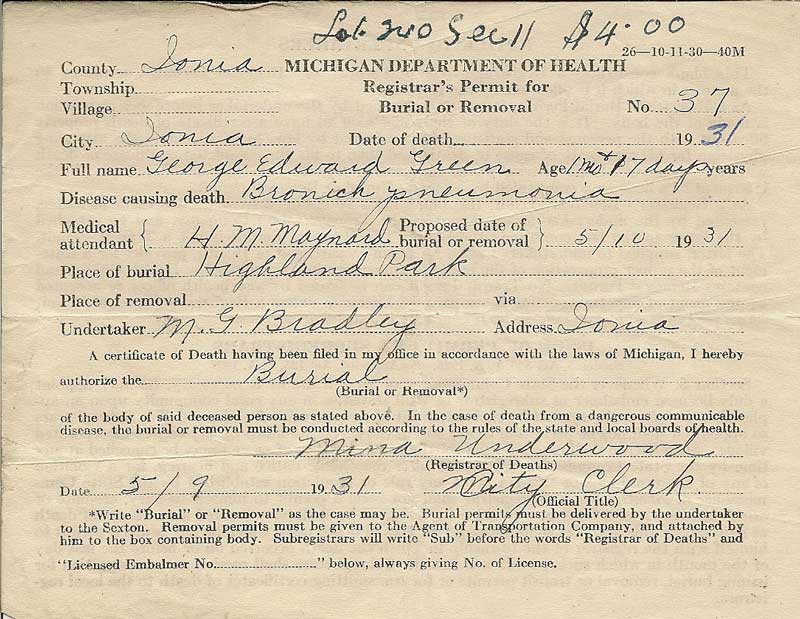 Lot 240 Sec 11 $4.00
26—10-11-30—40M
County Ionia MICHIGAN DEPARTMENT OF HEALTH
Township Registrar's Permit for
Village Burial or Removal No. 37
City Ionia Date of death 1931
Full name George Edward Green Age 1 mo + 17 days years
Disease causing death Bronich pneumonia
Medical attendant { H. M. Maynard Proposed date of burial or removal } 5/10 1931
Place of burial Highland Park
Place of removal via
Undertaker M. G. Bradley Address Ionia
A certificate of Death having been filed in my office in accordance with the laws of Michigan, I hereby
authorize the Burial
(Burial or Removal*)
of the body of said deceased person as stated above. In the case of death from a dangerous communicable
disease, the burial or removal must be conducted according to the rules of the state and local boards of health.
Mina Underwood
(Registrar of Deaths)
Date 5/9 1931 City Clerk.
(Official Title)
*Write "Burial" or "Removal" as the case may be. Burial permits must be delivered by the undertaker
to the Sexton. Removal permits must be given to the Agent of Transportation Company, and attached by
him to the box containing body. Subregistrars will write "Sub" before the words "Registrar of Deaths" and
"Licensed Embalmer No. " below, always giving No. of License.